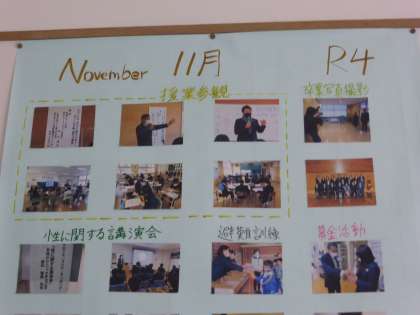 November 11月 R4
授業参観
卒業写真撮影
性に関する講演会
避難訓練
募金活動